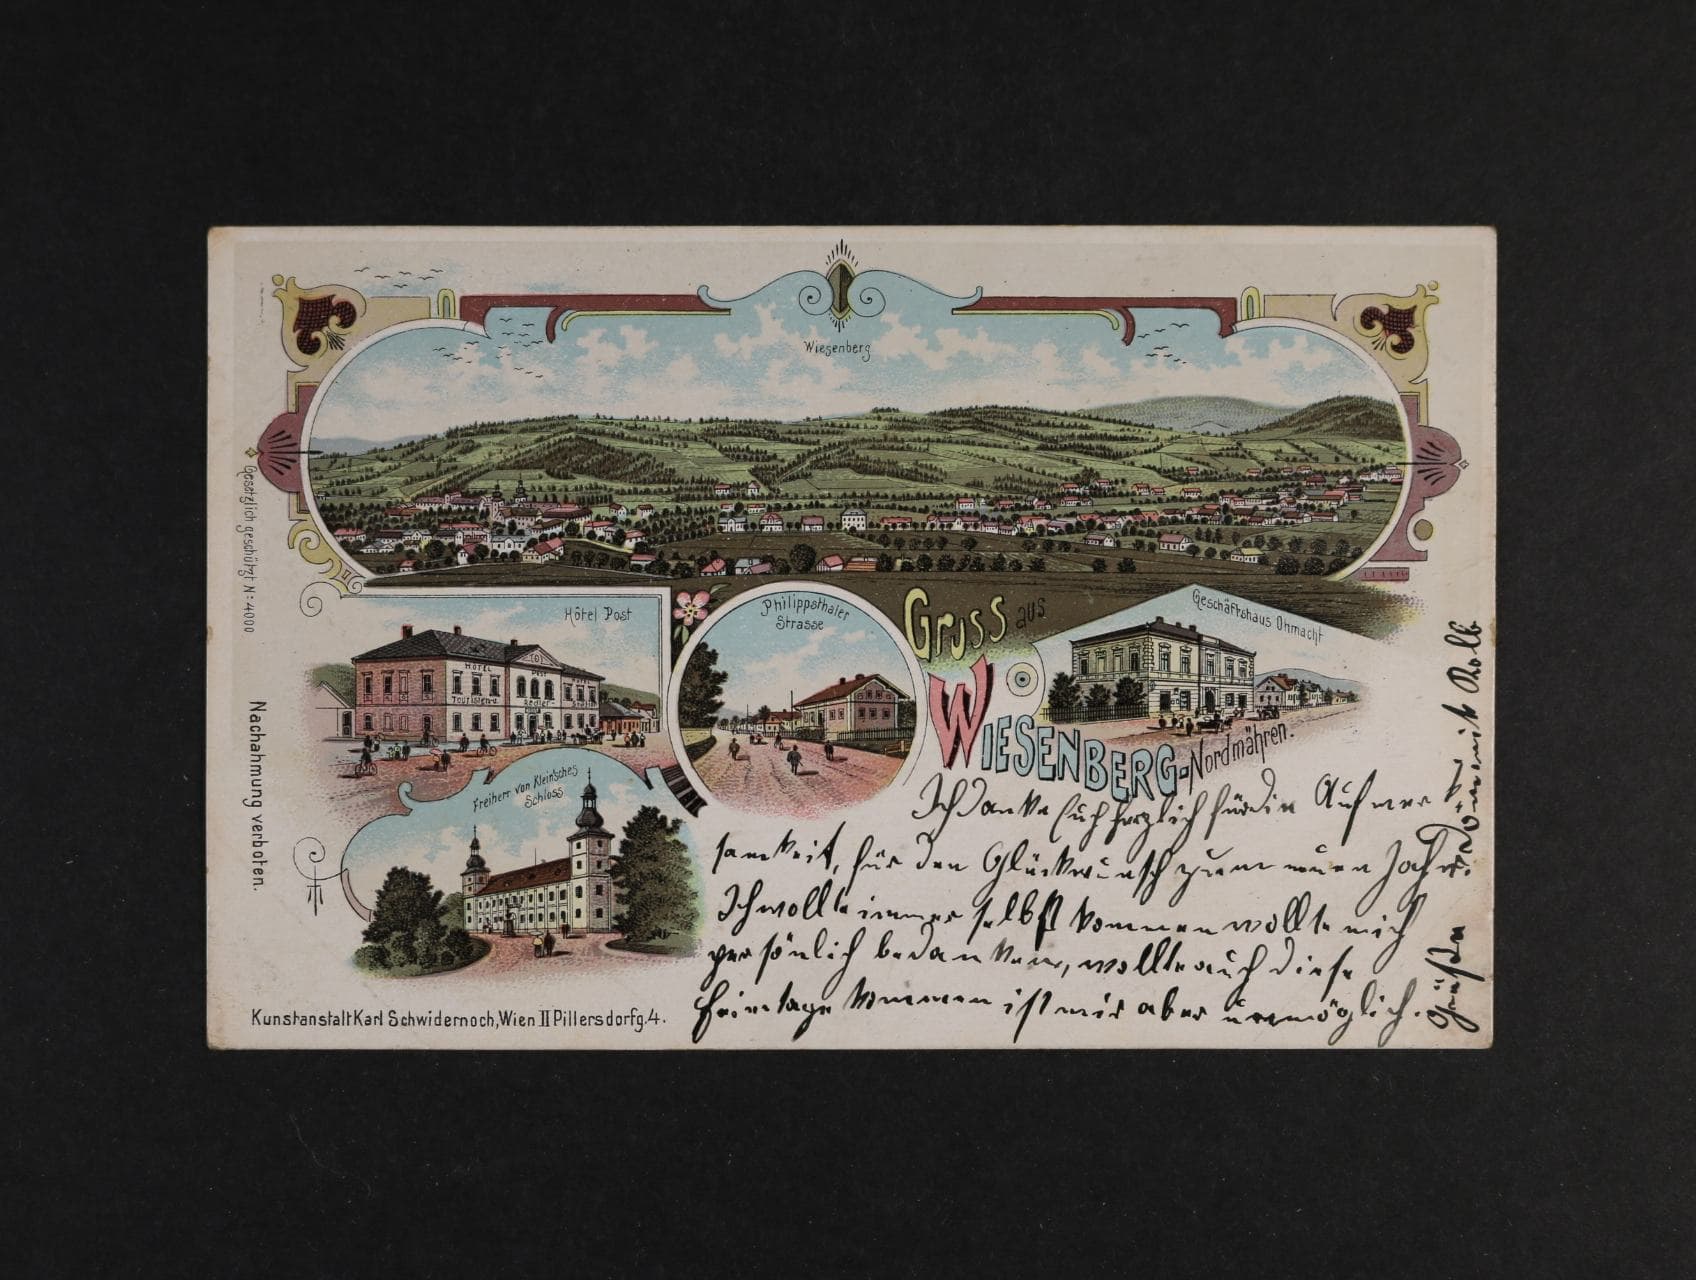 Wiesenberg
Gesetzlich geschürzt N: 4000
Nachahmung verboten.
Hôtel Post
HÔTEL
Post
HÔTEL
Touristen-u.
Radler-
Philippsthaler
Strasse
Gruss aus
Wiesenberg-Nordmähren.
Geschäftshaus Ohmacht
Freiherr von Klein'sches
Schloss
Ich danke Euch herzlich für die Aufmerk
samkeit, für den Glückwunsch zum neuen Jahr.
Ich wollte immer selbst kommen wollte mich
persönlich bedanken, wollte auch diese
Feiertage kommen ist mir aber unmöglich.
Grüße
Kunstanstalt Karl Schwidernoch, Wien II Pillersdorfg. 4.